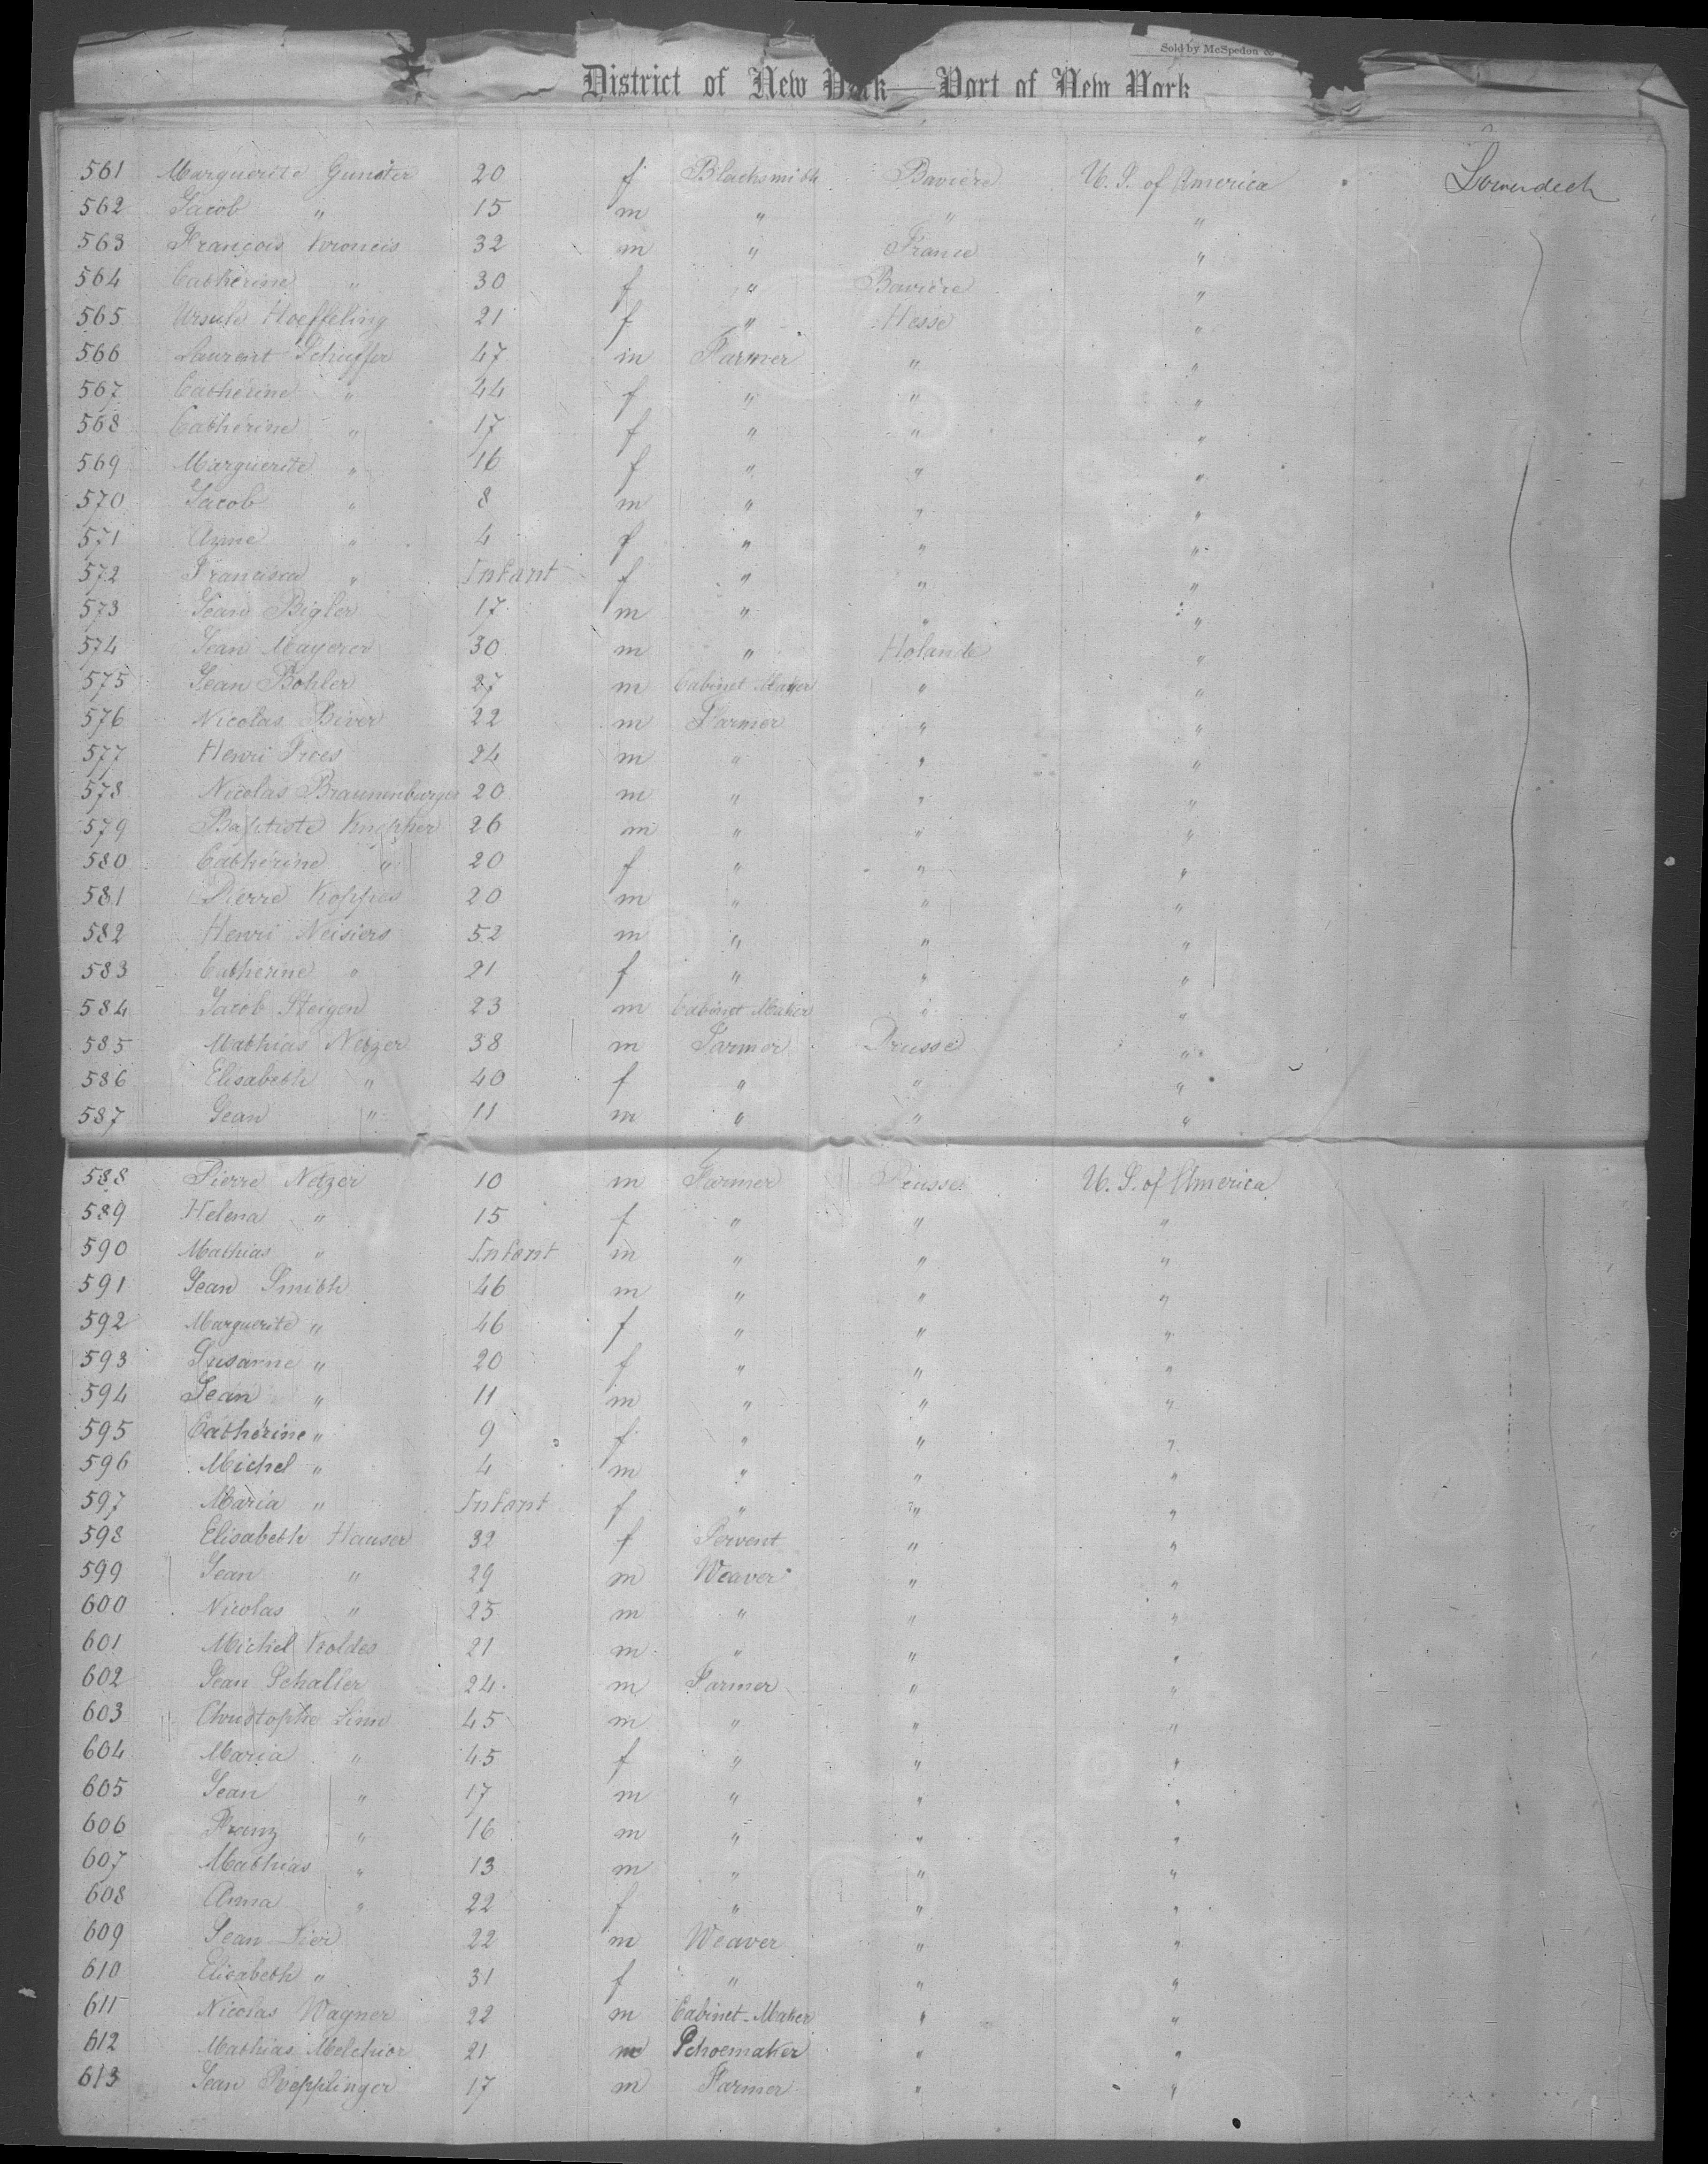 Sold by McSpedon &
District of New York—Port of New York
561 Marguerite Gunster 20 f Blacksmith Bavière U. S. of America Lowerdeck
562 Jacob " 15 m " " "
563 François Kroneis 32 m " France "
564 Catherine " 30 f " Bavière "
565 Ursule Hoeffeling 21 f " Hesse "
566 Laurent Schuffer 47 m Farmer " "
567 Catherine " 44 f " " "
568 Catherine " 17 f " " "
569 Marguerite " 16 f " " "
570 Jacob " 8 m " " "
571 Anne " 4 f " " "
572 Francisca " Infant f " " "
573 Jean Bigler 17 m " " "
574 Jean Mayerer 30 m " Holande "
575 Jean Bohler 27 m Cabinet Maker " "
576 Nicolas Biver 22 m Farmer " "
577 Henri Troes 24 m " " "
578 Nicolas Braunenburger 20 m " " "
579 Baptiste Knepher 26 m " " "
580 Catherine " 20 f " " "
581 Pierre Koppes 20 m " " "
582 Henri Neisiers 52 m " " "
583 Catherine " 21 f " " "
584 Jacob Steigen 23 m Cabinet Maker " "
585 Mathias Netzer 38 m Farmer Prusse "
586 Elisabeth " 40 f " " "
587 Jean " 11 m " " "
588 Pierre Netzer 10 m Farmer Prusse U. S. of America
589 Helena " 15 f " " "
590 Mathias " Infant m " " "
591 Jean Smith 46 m " " "
592 Marguerite " 46 f " " "
593 Susanne " 20 f " " "
594 Jean " 11 m " " "
595 Catherine " 9 f " " "
596 Michel " 4 m " " "
597 Maria " Infant f " " "
598 Elisabeth Hauser 32 f Servent " "
599 Jean " 29 m Weaver " "
600 Nicolas " 25 m " " "
601 Michel Koldes 21 m " " "
602 Jean Schaller 24 m Farmer " "
603 Christophe Linn 45 m " " "
604 Maria " 45 f " " "
605 Jean " 17 m " " "
606 Franz " 16 m " " "
607 Mathias " 13 m " " "
608 Anna " 22 f " " "
609 Jean Lier 22 m Weaver " "
610 Elisabeth " 31 f " " "
611 Nicolas Wagner 22 m Cabinet-Maker " "
612 Mathias Melchior 21 m Schoemaker " "
613 Jean Repplinger 17 m Farmer " "